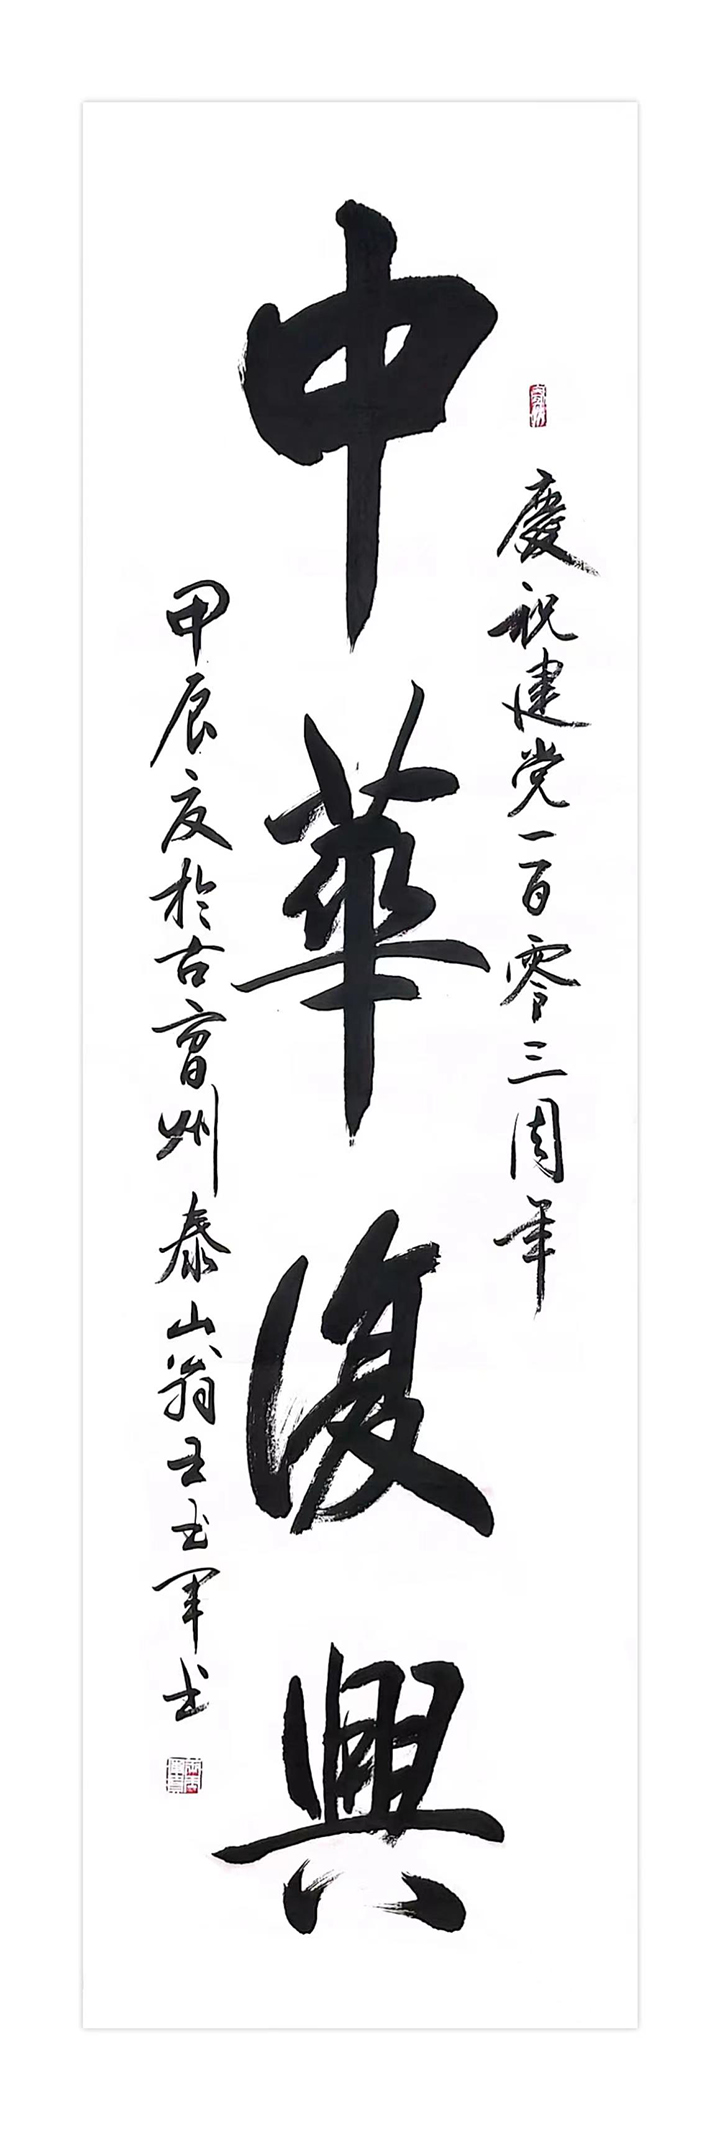 慶祝建党一百零三周年
中華復興
甲辰夏於古曹州泰山翁王玉军书